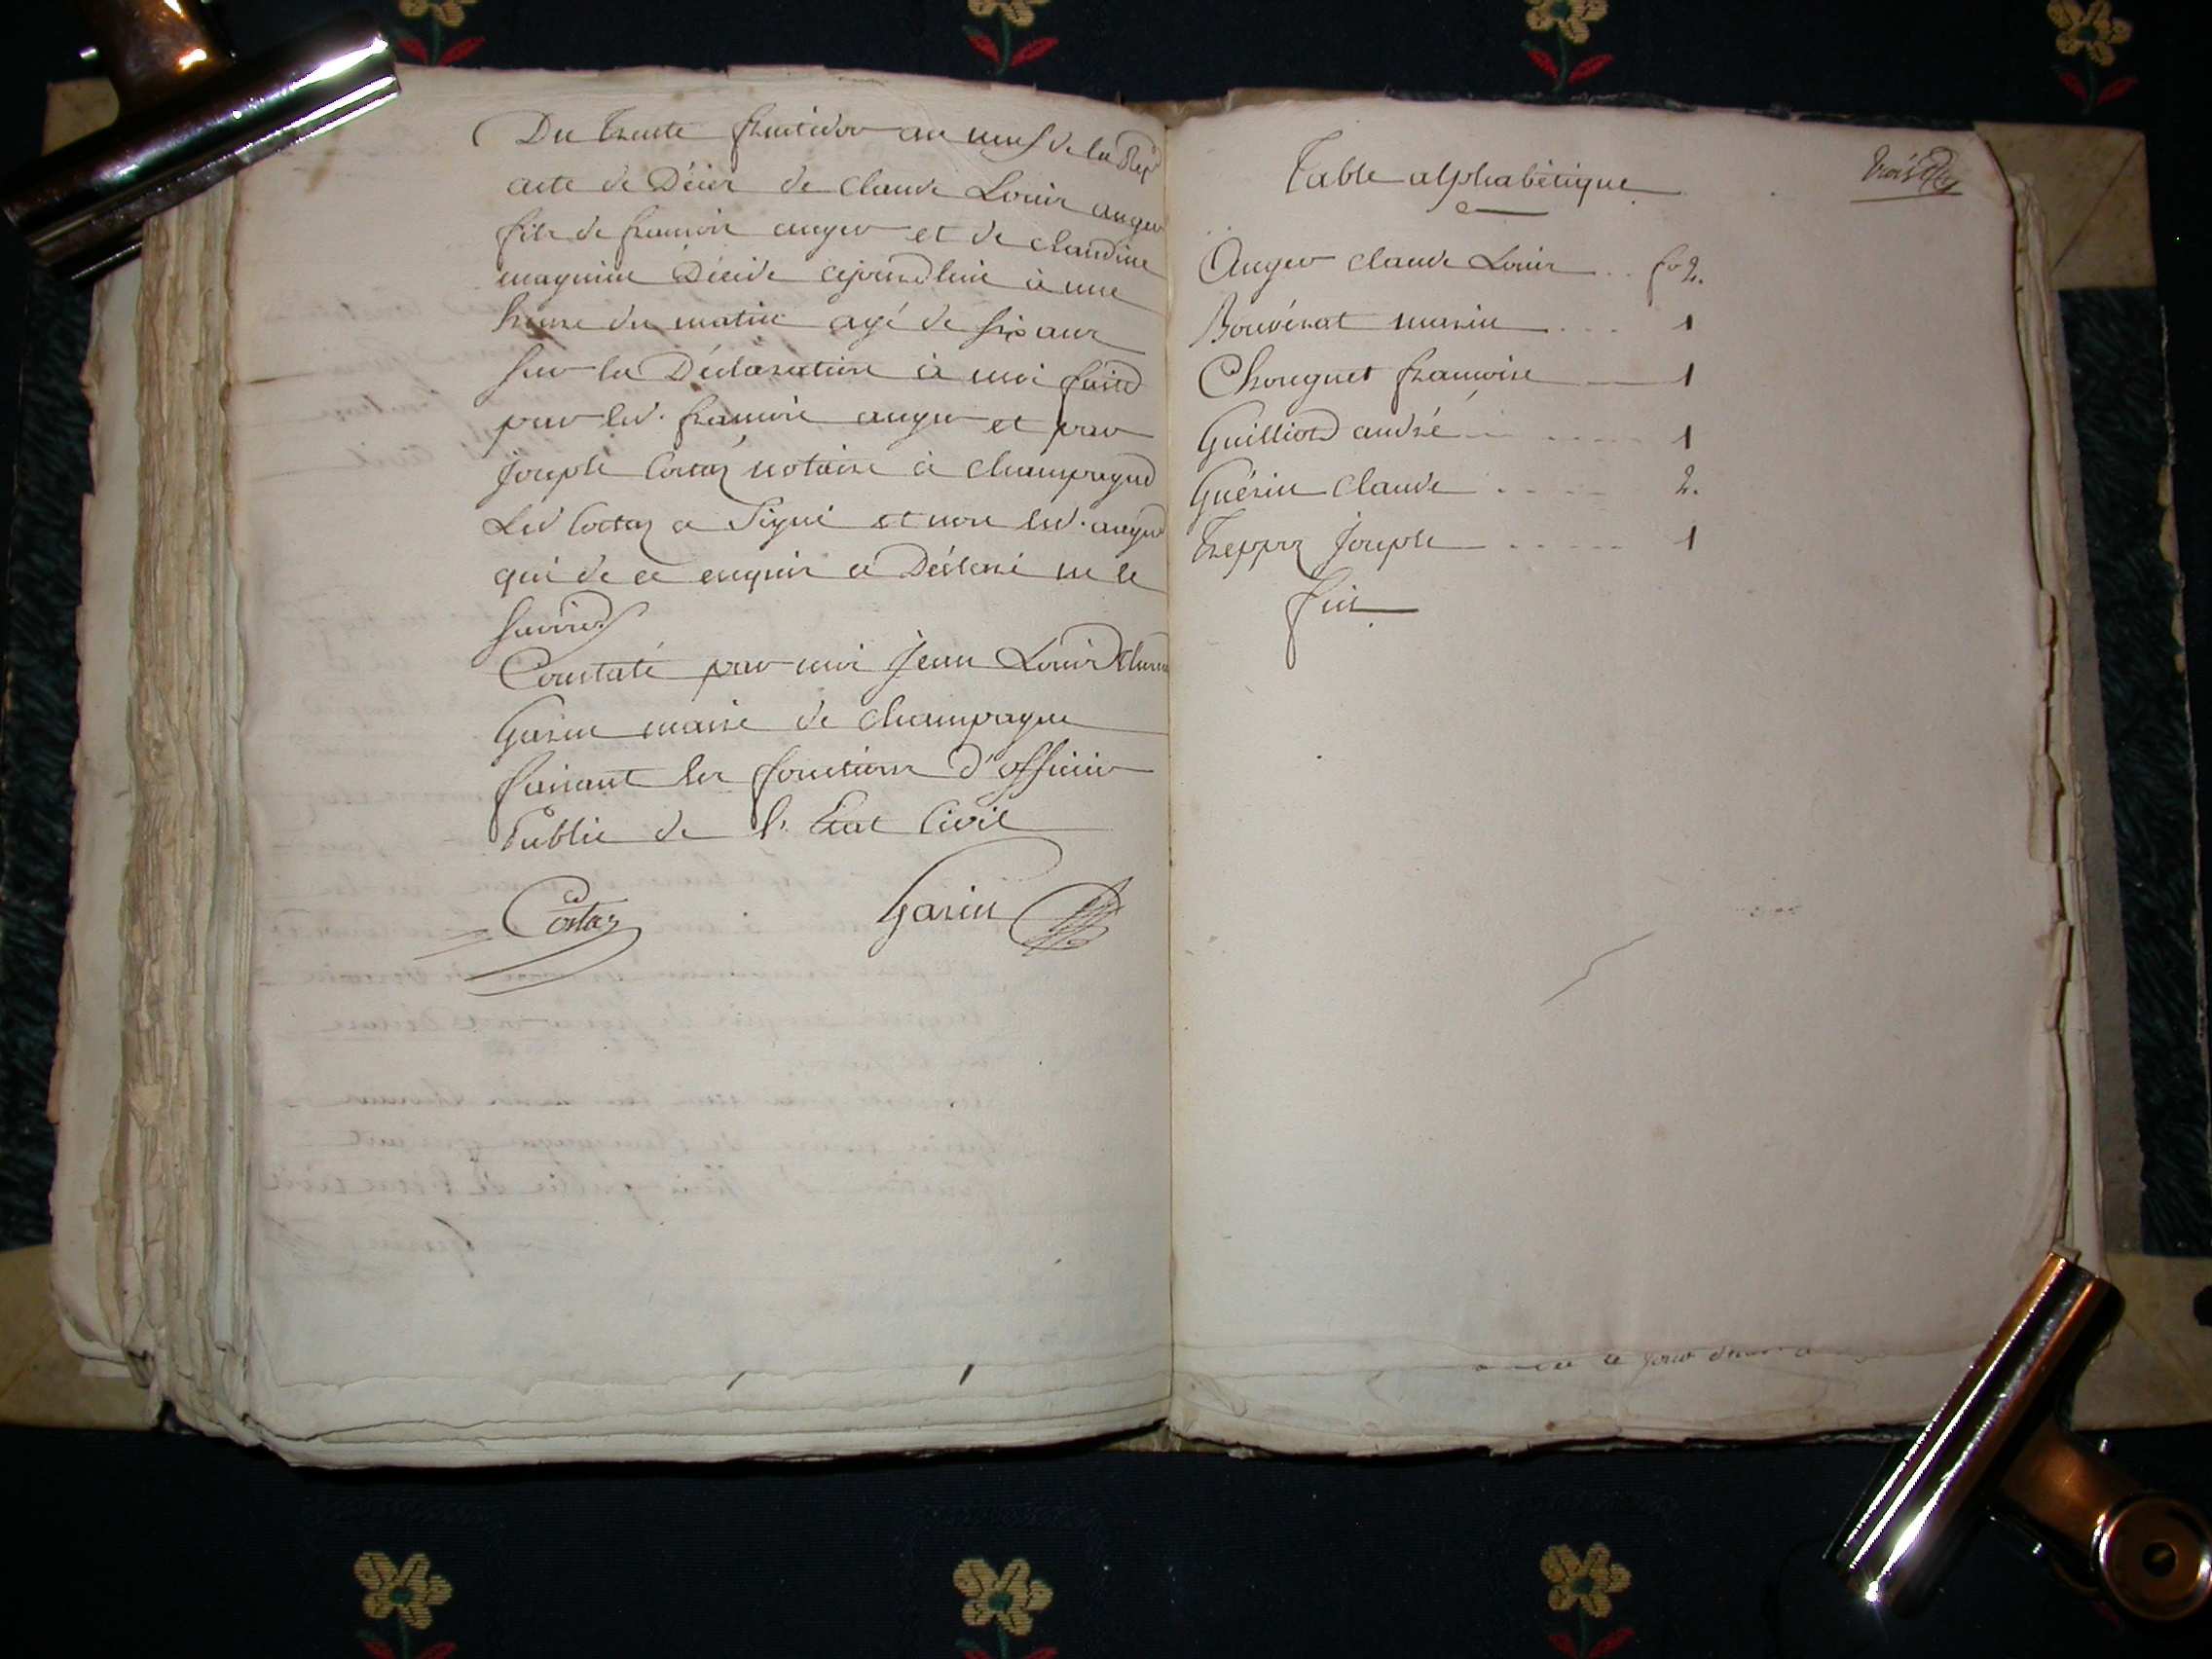 Du trente fructidor an neuf de la Rep
acte de Décès de Claude Louis auger
fils de francois auger et de claudine
magnin Décédé cejourdhui à une
heure du matin agé de six ans
sur la Déclaration à moi faite
par led. francois auger et par
joseph Costaz notaire à champagne
Led Costaz a signé et non led. auger
qui de ce enquis a Déclaré ne le
savoir
Constaté par moi jean Louis
Garin maire de champagne
faisant les fonctions d'officier
Public de l'Etat Civil
Costaz Garin
Table alphabétique
trois
Auger claude Louis .. fo 2.
Bouvérat marin ... 1
Chouquet francoise 1
Guilliod andré .... 1
Guérin Claude .... 2.
Treppoz joseph ..... 1
fin